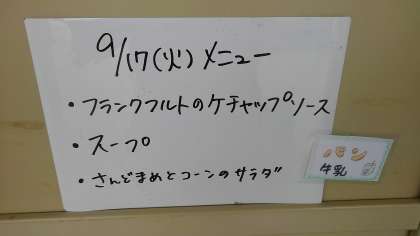 9/17(火)メニュー
・フランクフルトのケチャップソース
・スープ
・さんどまめとコーンのサラダ
パン
牛乳